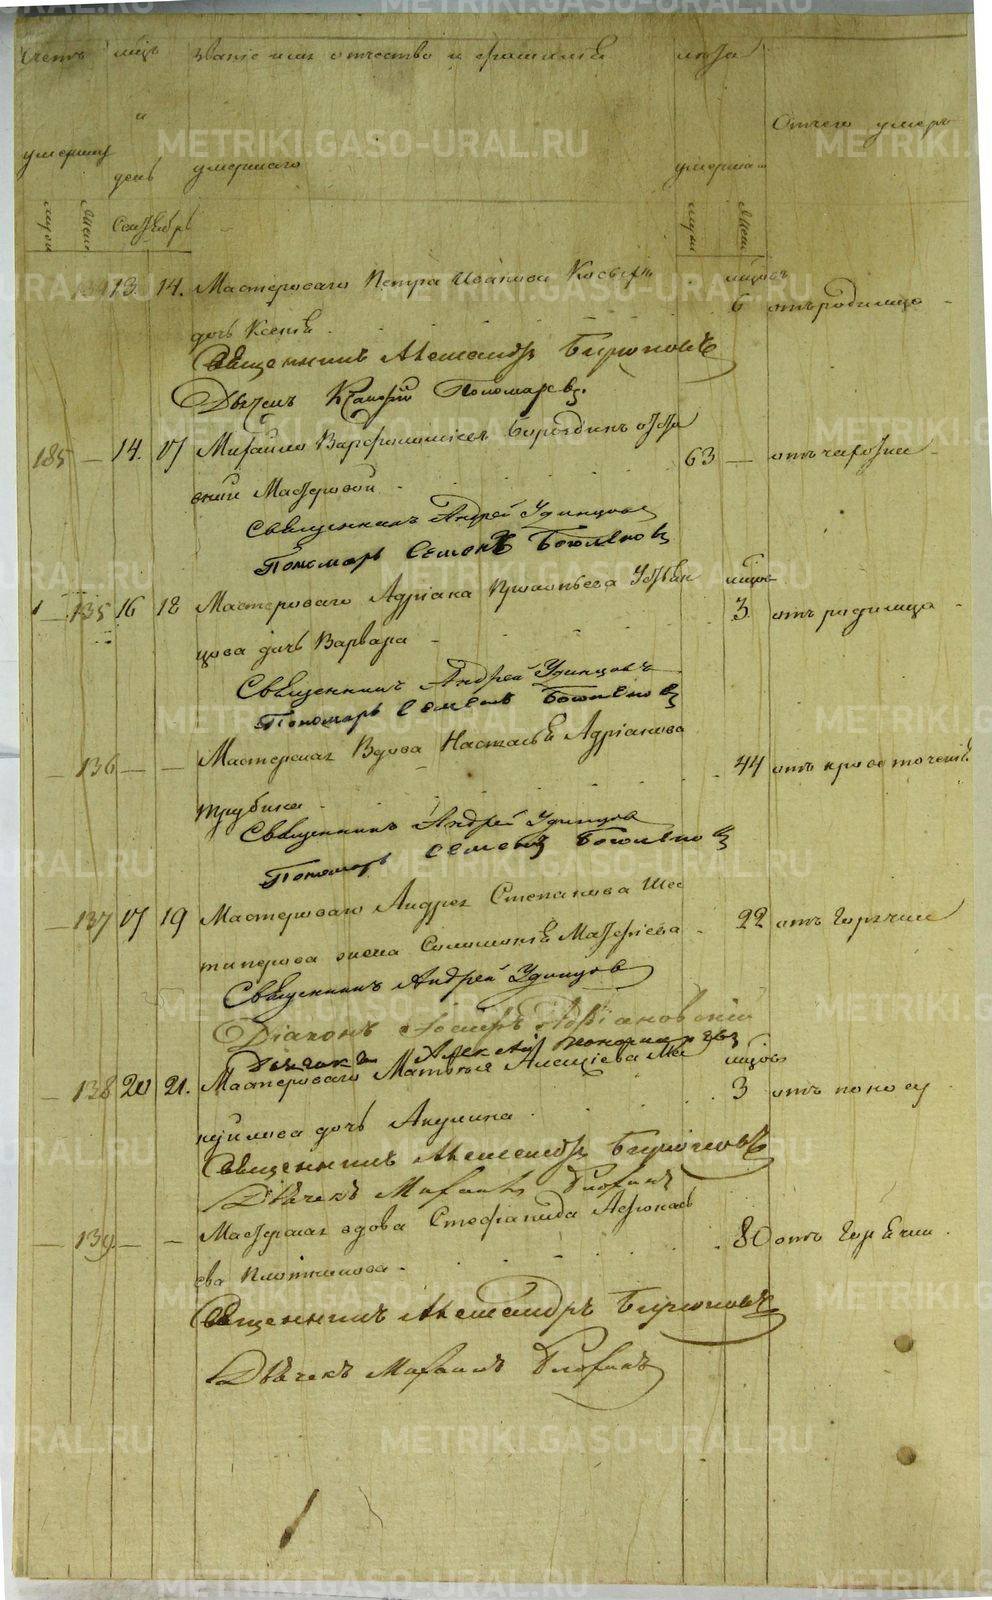 METRIKI.GASO-URAL.RU
Счетъ мцъ Званіе имя отчество и фамилія лѣта
и Отчего умеръ
умершиҳ день умершаго умерша
муж жен Сентябрь муж жен
134 13. 14. Мастероваго Петра Иванова мцовъ
дочь Ксенія 6 отъ родимца
Священникъ Александръ Бирюковъ
Дьячекъ Пономаревъ.
185 — 14. 17 Михайло Варфоломеевъ Бороздинъ
Мастеровой 63 — отъ чахотки
Священникъ Андрей Удинцовъ
Пономарь Семенъ Боголеповъ
135 16 18 Мастероваго Адріана Прокопьева мцов
цова дочь Варвара 3 отъ родимца
Священникъ Андрей Удинцовъ
Пономарь Семенъ Боголеповъ
— 136 — — Мастерская Вдова Настасья Адріанова
Трубина 44 отъ кровотеченія
Священникъ Андрей Удинцовъ
Пономарь Семенъ Боголеповъ
— 137 17 19 Мастероваго Андрея Степанова Шес
типерова жена Соломонія Матфіева 22 отъ горячки
Священникъ Андрей Удинцовъ
Діаконъ
Дьячекъ Алексѣй Пономаревъ
— 138 20 21. Мастероваго Матвея Алексіева Ме мцовъ
дочь Акулина 3 отъ поносу
Священникъ Александръ Бирюковъ
Дьячекъ Михаилъ
— 139 — — Мастерская вдова Стефанида Афонась
ева Плотникова 80 отъ горячки
Священникъ Александръ Бирюковъ
Дьячекъ Михаилъ